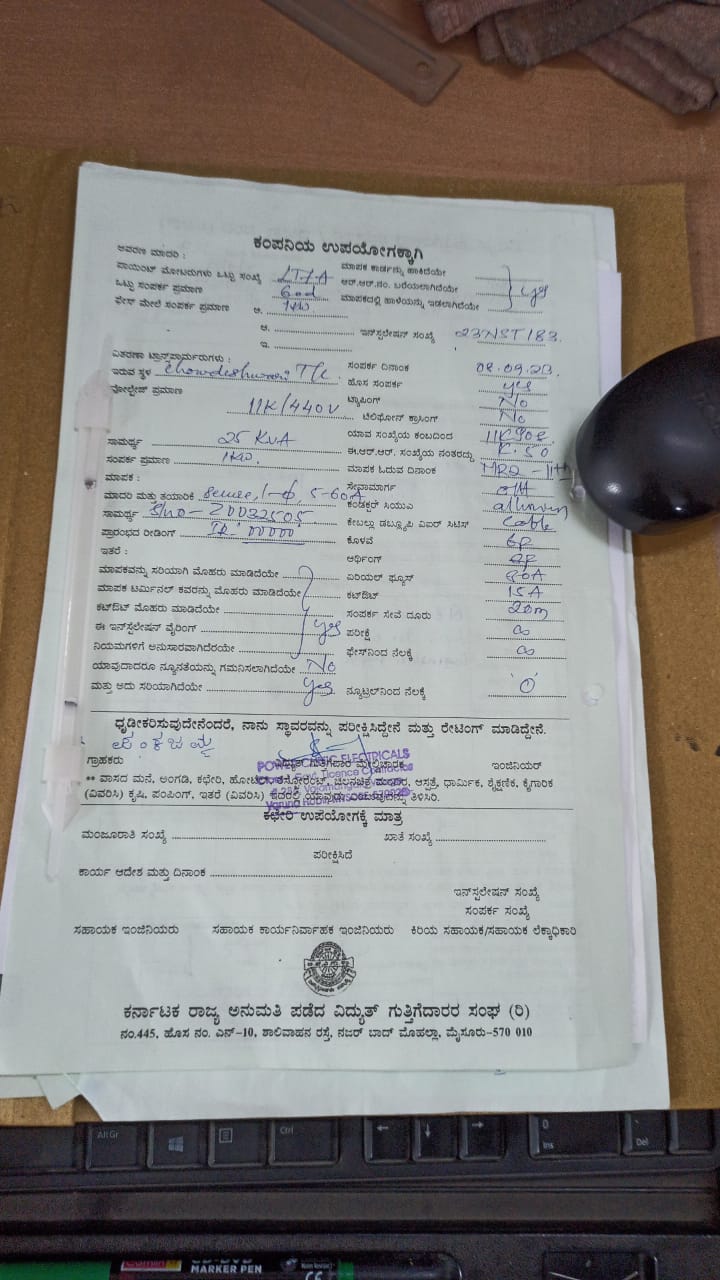 ಕಂಪನಿಯ ಉಪಯೋಗಕ್ಕಾಗಿ
ಆವರಣ ಮಾದರಿ :
ಪಾಯಿಂಟ್ ಮೋಟರುಗಳು ಒಟ್ಟು ಸಂಖ್ಯೆ LT1A ಮಾಪಕ ಕಾರ್ಡನ್ನು ಹಾಕಿದೆಯೇ
ಒಟ್ಟು ಸಂಪರ್ಕ ಪ್ರಮಾಣ ಆರ್.ಆರ್.ನಂ. ಬರೆಯಲಾಗಿದೆಯೇ yes
ಫೇಸ್ ಮೇಲೆ ಸಂಪರ್ಕ ಪ್ರಮಾಣ ಅ. 1KW ಮಾಪಕದಲ್ಲಿ ಹಾಳೆಯನ್ನು ಇಡಲಾಗಿದೆಯೇ
ಆ. ಇನ್‌ಸ್ಟಲೇಷನ್ ಸಂಖ್ಯೆ 23NST183
ಇ.
ವಿತರಣಾ ಟ್ರಾನ್ಸ್‌ಫಾರ್ಮರುಗಳು :
ಇರುವ ಸ್ಥಳ Chowdeshwari T/c. ಸಂಪರ್ಕ ದಿನಾಂಕ 08.09.23.
ವೋಲ್ಟೇಜ್ ಪ್ರಮಾಣ ಹೊಸ ಸಂಪರ್ಕ yes
ಟ್ಯಾಪಿಂಗ್ No
11K/440V ಟೆಲಿಫೋನ್ ಕ್ರಾಸಿಂಗ್ No
ಯಾವ ಸಂಖ್ಯೆಯ ಕಂಬದಿಂದ
ಸಾಮರ್ಥ್ಯ 25 KVA ಈ.ಆರ್.ಆರ್. ಸಂಖ್ಯೆಯ ನಂತರದ್ದು K.50
ಸಂಪರ್ಕ ಪ್ರಮಾಣ 1KW. ಮಾಪಕ ಓದುವ ದಿನಾಂಕ
ಮಾಪಕ : ಸೇವಾಮಾರ್ಗ OH
ಮಾದರಿ ಮತ್ತು ತಯಾರಿಕೆ Secure, 1-ф, 5-60A ಕಂಡಕ್ಟರ್ ಸಿಯುಎ
ಸಾಮರ್ಥ್ಯ S/no - Z0032505 ಕೇಬಲ್ಲು ಡಬ್ಲ್ಯೂಪಿ ವಿಐರ್ ಸಿಟಿಸ್ Cable
ಪ್ರಾರಂಭದ ರೀಡಿಂಗ್ IR: 00000 ಕೊಳವೆ GP
ಇತರೆ : ಆರ್ಥಿಂಗ್
ಮಾಪಕವನ್ನು ಸರಿಯಾಗಿ ಮೊಹರು ಮಾಡಿದೆಯೇ ಏರಿಯಲ್ ಫ್ಯೂಸ್
ಮಾಪಕ ಟರ್ಮಿನಲ್ ಕವರನ್ನು ಮೊಹರು ಮಾಡಿದೆಯೇ ಕಟ್‌ಔಟ್ 15A
ಕಟ್‌ಔಟ್ ಮೊಹರು ಮಾಡಿದೆಯೇ ಸಂಪರ್ಕ ಸೇವೆ ದೂರು 20m
ಈ ಇನ್‌ಸ್ಟಲೇಷನ್ ವೈರಿಂಗ್ yes ಪರೀಕ್ಷೆ ∞
ನಿಯಮಗಳಿಗೆ ಅನುಸಾರವಾಗಿದೆರೆಯೇ ಫೇಸ್‌ನಿಂದ ನೆಲಕ್ಕೆ ∞
ಯಾವುದಾದರೂ ನ್ಯೂನತೆಯನ್ನು ಗಮನಿಸಲಾಗಿದೆಯೇ No
ಮತ್ತು ಅದು ಸರಿಯಾಗಿದೆಯೇ Yes ನ್ಯೂಟ್ರಲ್‌ನಿಂದ ನೆಲಕ್ಕೆ '0'
ಧೃಡೀಕರಿಸುವುದೇನೆಂದರೆ, ನಾನು ಸ್ಥಾವರವನ್ನು ಪರೀಕ್ಷಿಸಿದ್ದೇನೆ ಮತ್ತು ರೇಟಿಂಗ್ ಮಾಡಿದ್ದೇನೆ.
ಗ್ರಾಹಕರು ವಿದ್ಯುತ್ ಗುತ್ತಿಗೆದಾರ ಮೇಲ್ವಿಚಾರಕ ಇಂಜಿನಿಯರ್
** ವಾಸದ ಮನೆ, ಅಂಗಡಿ, ಕಛೇರಿ, ಹೋಟೆಲ್, ರೆಸ್ಟೋರೆಂಟ್, ಚಲನಚಿತ್ರ ಮಂದಿರ, ಆಸ್ಪತ್ರೆ, ಧಾರ್ಮಿಕ, ಶೈಕ್ಷಣಿಕ, ಕೈಗಾರಿಕೆ
(ವಿವರಿಸಿ) ಕೃಷಿ, ಪಂಪಿಂಗ್, ಇತರೆ (ವಿವರಿಸಿ) ಇದರಲ್ಲಿ ಯಾವುದು ಎಂಬುವುದನ್ನು ತಿಳಿಸಿರಿ.
ELECTRICALS
ಕಛೇರಿ ಉಪಯೋಗಕ್ಕೆ ಮಾತ್ರ
ಮಂಜೂರಾತಿ ಸಂಖ್ಯೆ ಖಾತೆ ಸಂಖ್ಯೆ
ಪರೀಕ್ಷಿಸಿದೆ
ಕಾರ್ಯ ಆದೇಶ ಮತ್ತು ದಿನಾಂಕ
ಇನ್‌ಸ್ಟಲೇಷನ್ ಸಂಖ್ಯೆ
ಸಂಪರ್ಕ ಸಂಖ್ಯೆ
ಸಹಾಯಕ ಇಂಜಿನಿಯರು ಸಹಾಯಕ ಕಾರ್ಯನಿರ್ವಾಹಕ ಇಂಜಿನಿಯರು ಕಿರಿಯ ಸಹಾಯಕ/ಸಹಾಯಕ ಲೆಕ್ಕಾಧಿಕಾರಿ
ಕರ್ನಾಟಕ ರಾಜ್ಯ ಅನುಮತಿ ಪಡೆದ ವಿದ್ಯುತ್ ಗುತ್ತಿಗೆದಾರರ ಸಂಘ (ರಿ)
ನಂ.445, ಹೊಸ ನಂ. ಎನ್-10, ಶಾಲಿವಾಹನ ರಸ್ತೆ, ನಜರ್ ಬಾದ್ ಮೊಹಲ್ಲಾ, ಮೈಸೂರು-570 010
Alt Gr
Ctrl
0
Ins
Del
CD-DVD
MARKER PEN